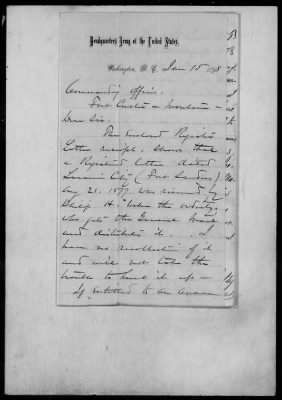 Headquarters Army of the United States.
Washington, D. C. Jan 15 1878
Commanding Officer.
Fort Custer - Montana -
Dear Sir.
The enclosed Register
Letter receipt. shows that
a Registered letter dated
City (Fort Sanders)
Aug. 21. 1877 was received by
Philip H. the orderly
who gets the General Mail
and distributes it. I
have no recollection of it
and will not take the
trouble to hunt it up -
If entitled to an answer